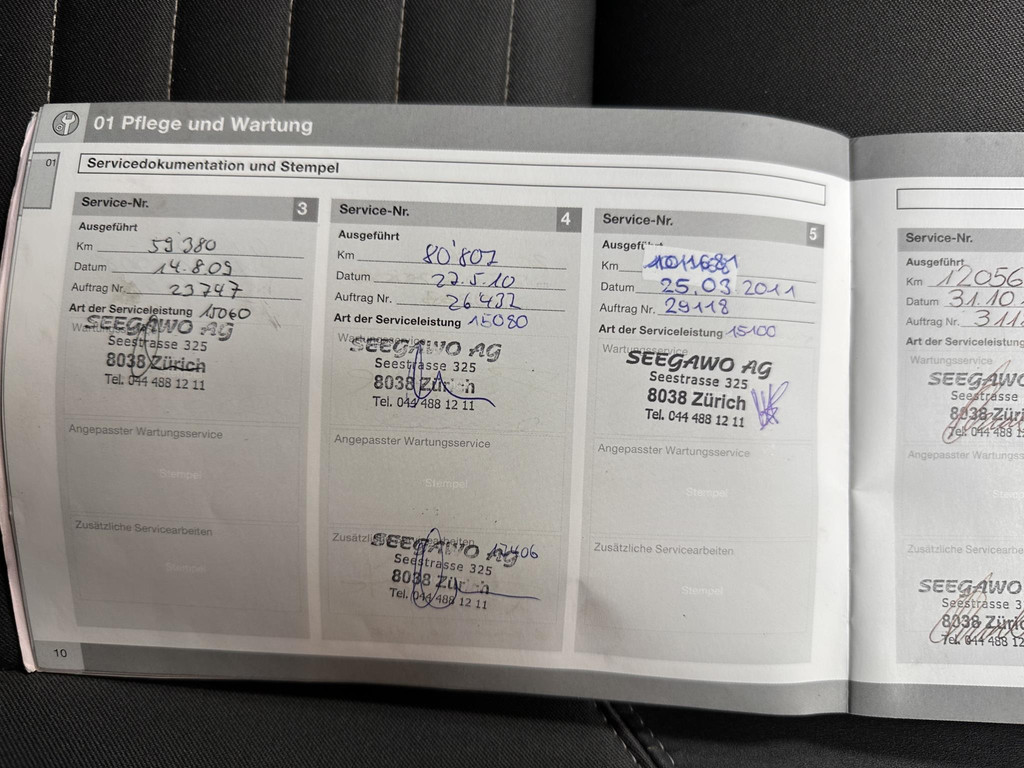 01 Pflege und Wartung
01
Servicedokumentation und Stempel
Service-Nr. 3
Ausgeführt
Km 59'380
Datum 14.8.09
Auftrag Nr. 23747
Art der Serviceleistung 15060
Wartungsservice
SEEGAWO AG
Seestrasse 325
8038 Zürich
Tel. 044 488 12 11
Angepasster Wartungsservice
Stempel
Zusätzliche Servicearbeiten
Stempel
Service-Nr. 4
Ausgeführt
Km 80'807
Datum 27.5.10
Auftrag Nr. 26432
Art der Serviceleistung 15080
Wartungsservice
SEEGAWO AG
Seestrasse 325
8038 Zürich
Tel. 044 488 12 11
Angepasster Wartungsservice
Stempel
Zusätzliche Servicearbeiten
17406
SEEGAWO AG
Seestrasse 325
8038 Zürich
Tel. 044 488 12 11
Service-Nr. 5
Ausgeführt
Km
Datum 25.03.2011
Auftrag Nr. 29118
Art der Serviceleistung 15100
Wartungsservice
SEEGAWO AG
Seestrasse 325
8038 Zürich
Tel. 044 488 12 11
Angepasster Wartungsservice
Stempel
Zusätzliche Servicearbeiten
Stempel
10
Service-Nr.
Ausgeführt
Km 12056
Datum 31.10
Auftrag Nr. 311
Art der Serviceleistung
Wartungsservice
SEEGAWO
Seestrasse 3
8038 Züric
Tel. 044 488 1
Angepasster Wartungsse
Stemp
Zusätzliche Servicearbe
SEEGAWO
Seestrasse 3
8038 Züri
Tel. 044 488 12